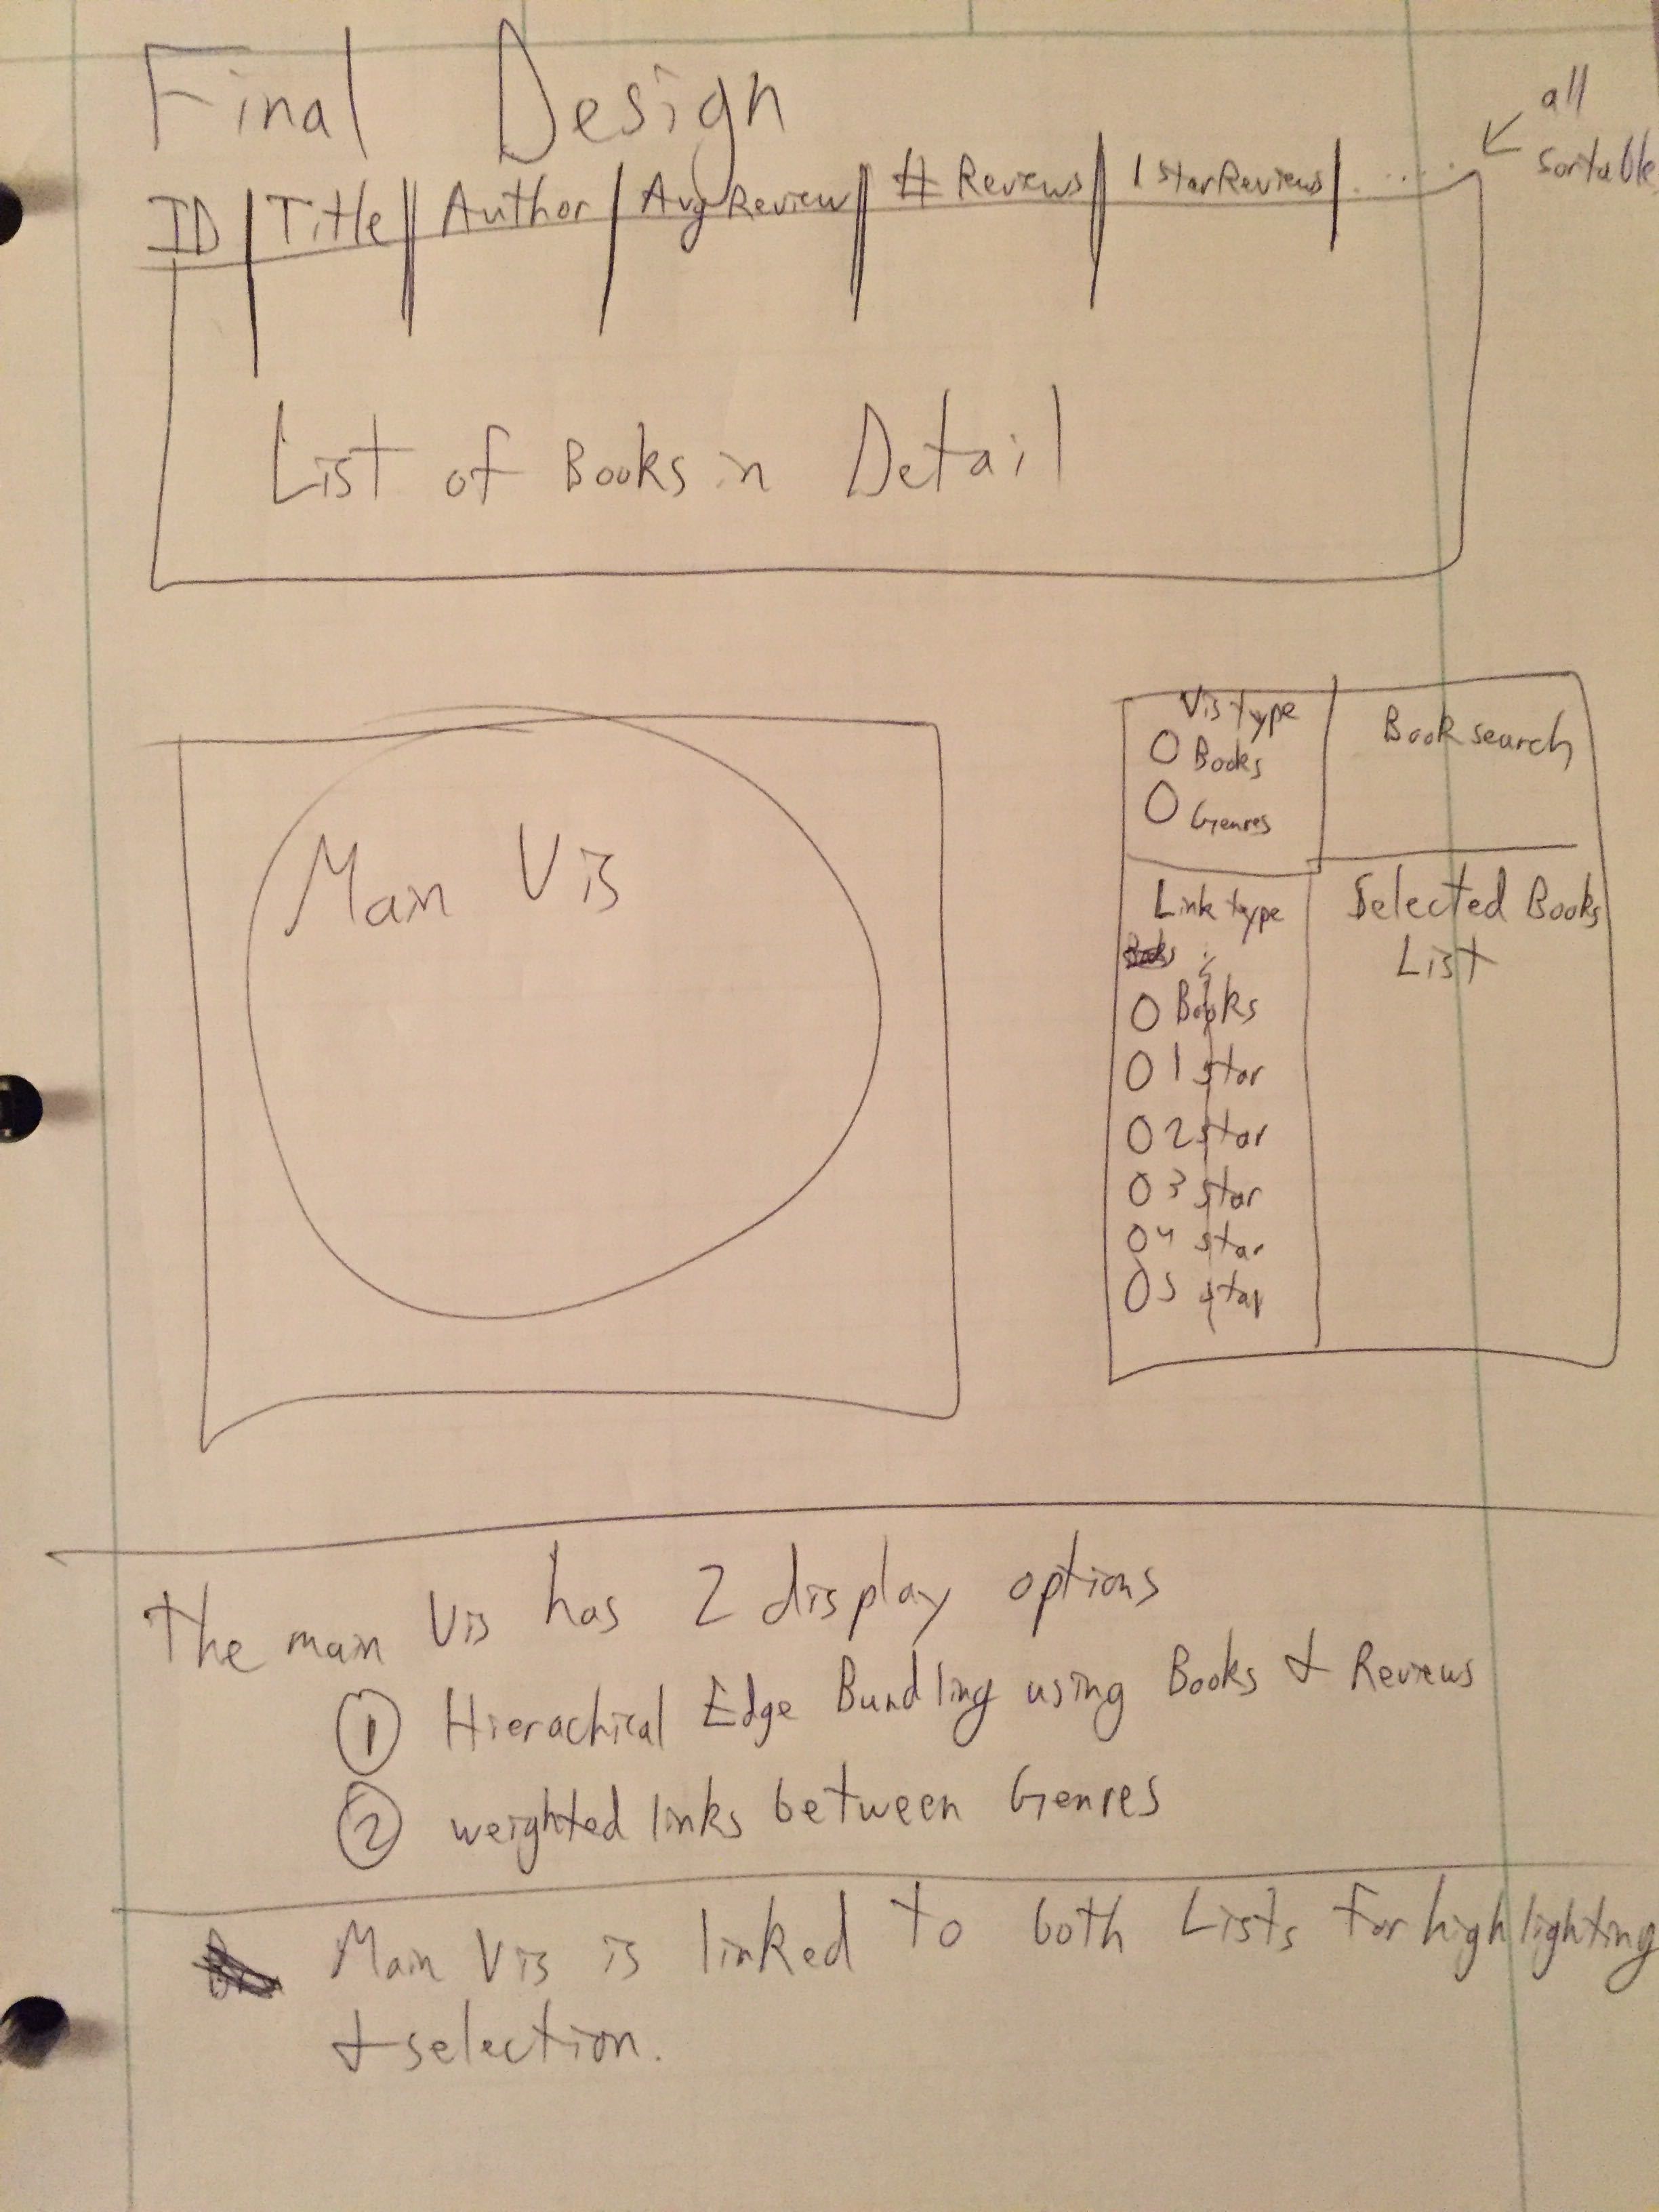 Final Design
all
sortable
ID | Title | Author | Avg Review | # Reviews | 1 star Reviews | .....
List of Books in Detail
Main Vis
Vis type
O Books
O Genres
Book search
Link type
Books
O Books
O 1 star
O 2 star
O 3 star
O 4 star
O 5 star
Selected Books
List
The main Vis has 2 display options
1 Hierachical Edge Bundling using Books & Reviews
2 weighted links between Genres
Main Vis is linked to both Lists for highlighting
& selection.